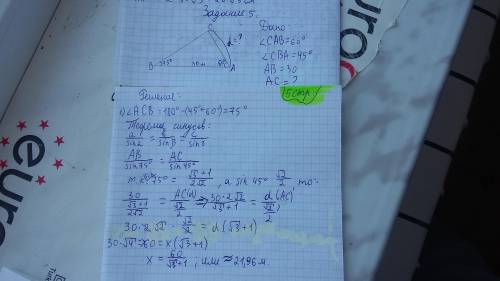 Задание 5.
Дано
C
d=?
∠CAB=60°
∠CBA=45°
B 45° 30м 60° A
AB=30
AC=?
Решение:
15стр
1) ∠ACB=180°-(45°+60°)=75°
Теорема синусов:
a/sinα = b/sinβ = c/sinγ
AB/sin75° = AC/sin45°
т.к. 75° = (√3+1)/(2√2), а sin 45° √2/2 то:
30/((√3+1)/(2√2)) = AC(d)/(√2/2) ⇒ 30·2√2/(√3+1) = d(AC)/(√2/2)
30·2√2 · √2/2 = d(√3+1)
30·√4 = x(√3+1)
x = 60/(√3+1), или ≈21,96 м.
euro
euro